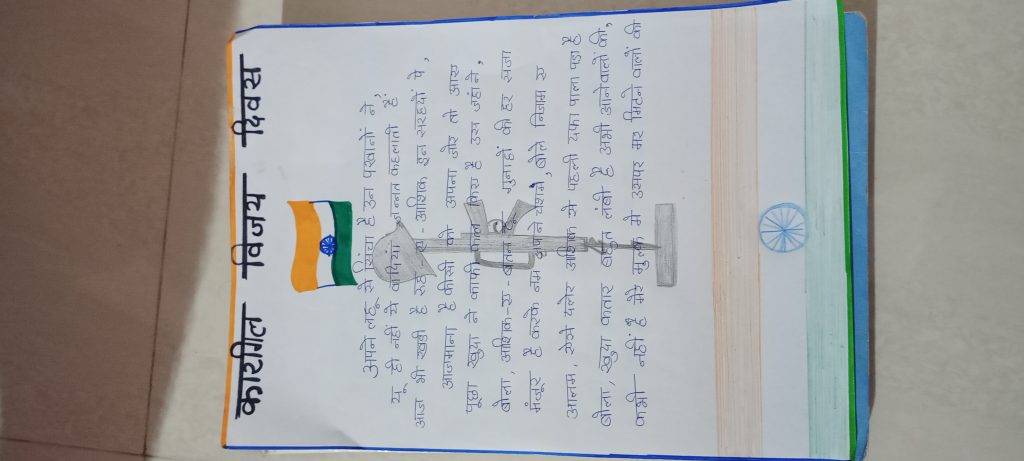 कारगिल विजय दिवस
अपने लहू से सिंचा है उन परवानों ने,
यू ही नहीं ये वादियां जन्नत कहलाती हैं
आज भी खड़ी है रूह-ए-आशिक इन सरहदों पे,
आजमाना है किसी को अपना जोर तो आए
पूछा खुदा ने काफी कत्ल किए है उस जहां ने,
बोला, आशिक-ए-वतन हूं गुनाहों की हर सजा
मंजूर है करके नम अपने चश्म, बोले निजाम ए
आलम, ऐसे दलेर आशिक से पहली दफा पाला पड़ा है
बोला, खुदा कतार बहुत लंबी है अभी आनेवालों की,
कभी नहीं है मेरे मुल्क में उसपर मर मिटने वालों की